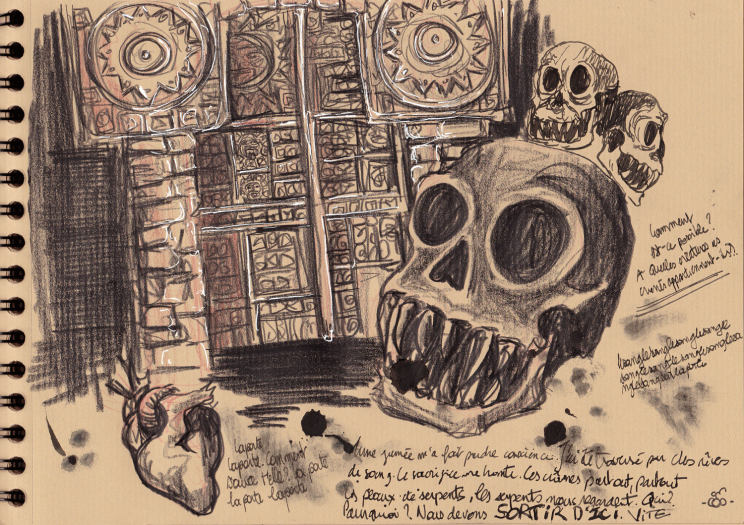 Comment
est-ce possible?
A quelles créatures es
crânes appartiennent-ils?
lesanglelesanglesanglesangle
sanglesanglelesanglesanglesa
La porte
La porte. Comment
s'ouvre telle? La porte
la porte la porte
Une fumée m'a fait perdre conscience. J'ai été traversé par des rêves
de sang. Le sacrifice me hante. Ces crânes partout, partout
les peaux de serpents, les serpents nous regardent. Qui?
Pourquoi? Nous devons SORTIR D'ICI. VITE.
-60-